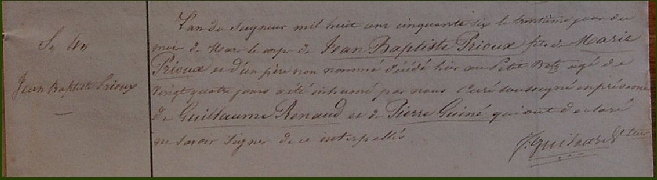 Sre
Jean Baptiste Prioux
L'an du Seigneur mil huit cent cinquante six le trentième jour du
mois de Mars le corps de Jean Baptiste Prioux fils de Marie
Prioux et d'un père non nommé décédé hier au Petit âgé de
vingt quatre jours a été inhumé par nous Curé soussigné en présence
de Guillaume Renaud et de Pierre Guiné qui ont déclaré
ne savoir signer de ce interpellés